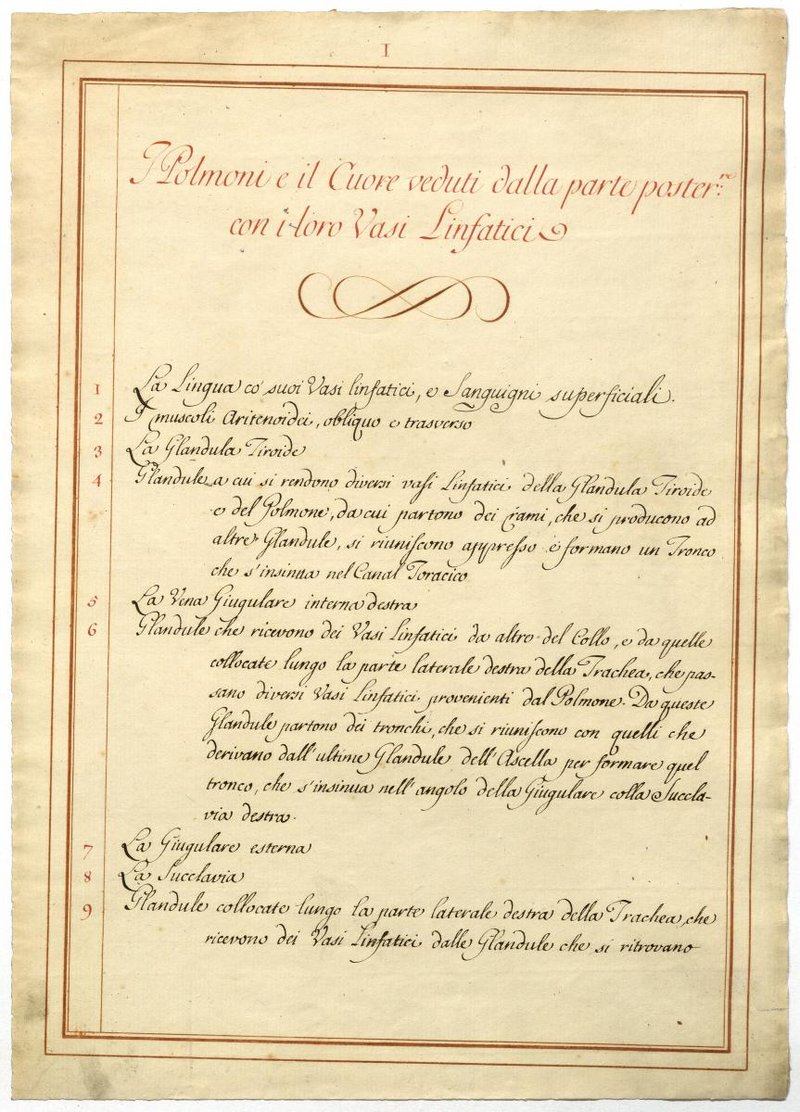 I
I Polmoni e il Cuore veduti dalla parte poster:re
con i loro Vasi Linfatici
1 La Lingua co' suoi Vasi linfatici, e Sanguigni superficiali.
2 I muscoli Aritenoidei, obliquo e trasverso
3 La Glandula Tiroide
4 Glandule a cui si rendono diversi vasi Linfatici della Glandula Tiroide
e del Polmone, da cui partono dei rami, che si producono ad
altre Glandule, si riuniscono appresso e formano un Tronco
che s'insinua nel Canal Toracico
5 La Vena Giugulare interna destra
6 Glandule che ricevono dei Vasi Linfatici da altre del Collo, e da quelle
collocate lungo la parte laterale destra della Trachea, che pas-
sano diversi Vasi Linfatici provenienti dal Polmone. Da queste
Glandule partono dei tronchi, che si riuniscono con quelli che
derivano dall'ultime Glandule dell'Ascella per formare quel
tronco, che s'insinua nell'angolo della Giugulare colla Succla-
via destra.
7 La Giugulare esterna
8 La Succlavia
9 Glandule collocate lungo la parte laterale destra della Trachea, che
ricevono dei Vasi Linfatici dalle Glandule che si ritrovano